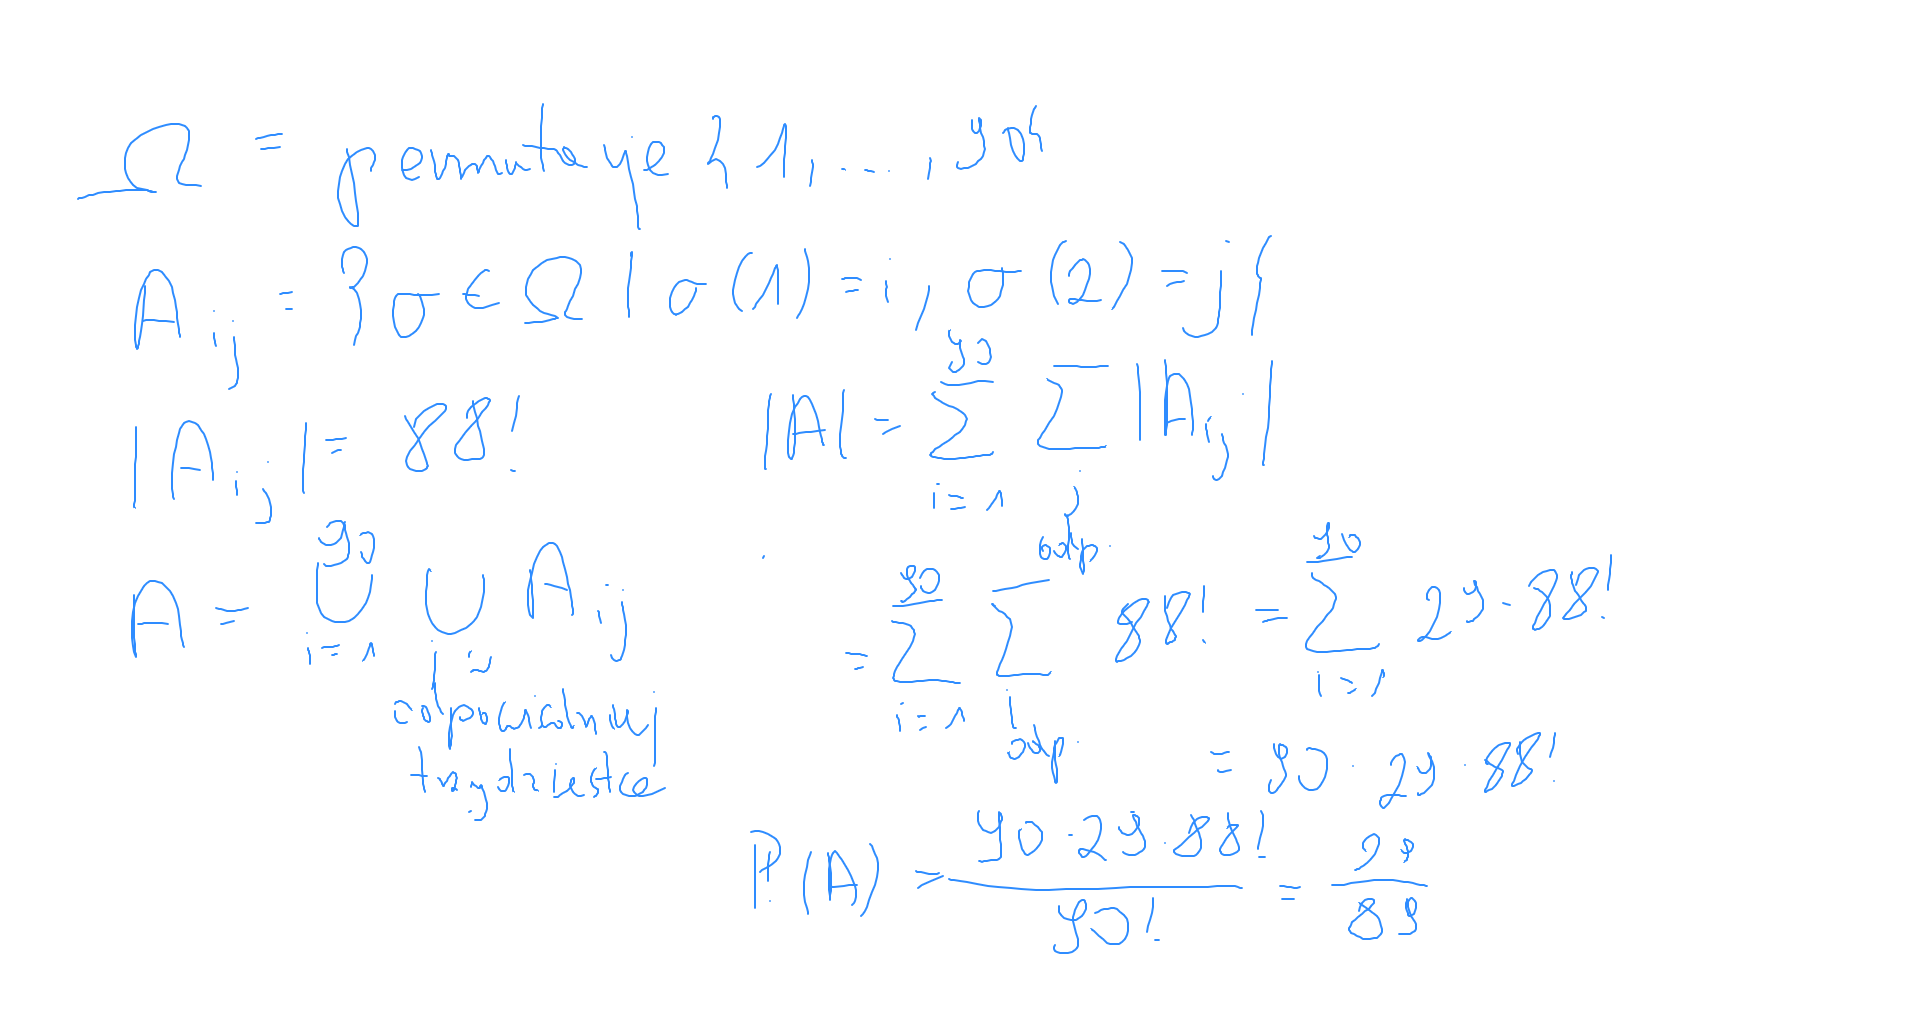 Ω = permutacje {1, ..., 90}
A_ij = {σ ∈ Ω | σ(1) = i, σ(2) = j}
|A_ij| = 88!
|A| = ∑_{i=1}^{90} ∑_{j odp.} |A_ij|
A = ⋃_{i=1}^{90} ⋃_{j = w odpowiedniej trzydziestce} A_ij
= ∑_{i=1}^{90} ∑_{j odp.} 88! = ∑_{i=1}^{90} 29 · 88!
= 90 · 29 · 88!
P(A) = \frac{90 · 29 · 88!}{90!} = \frac{29}{89}